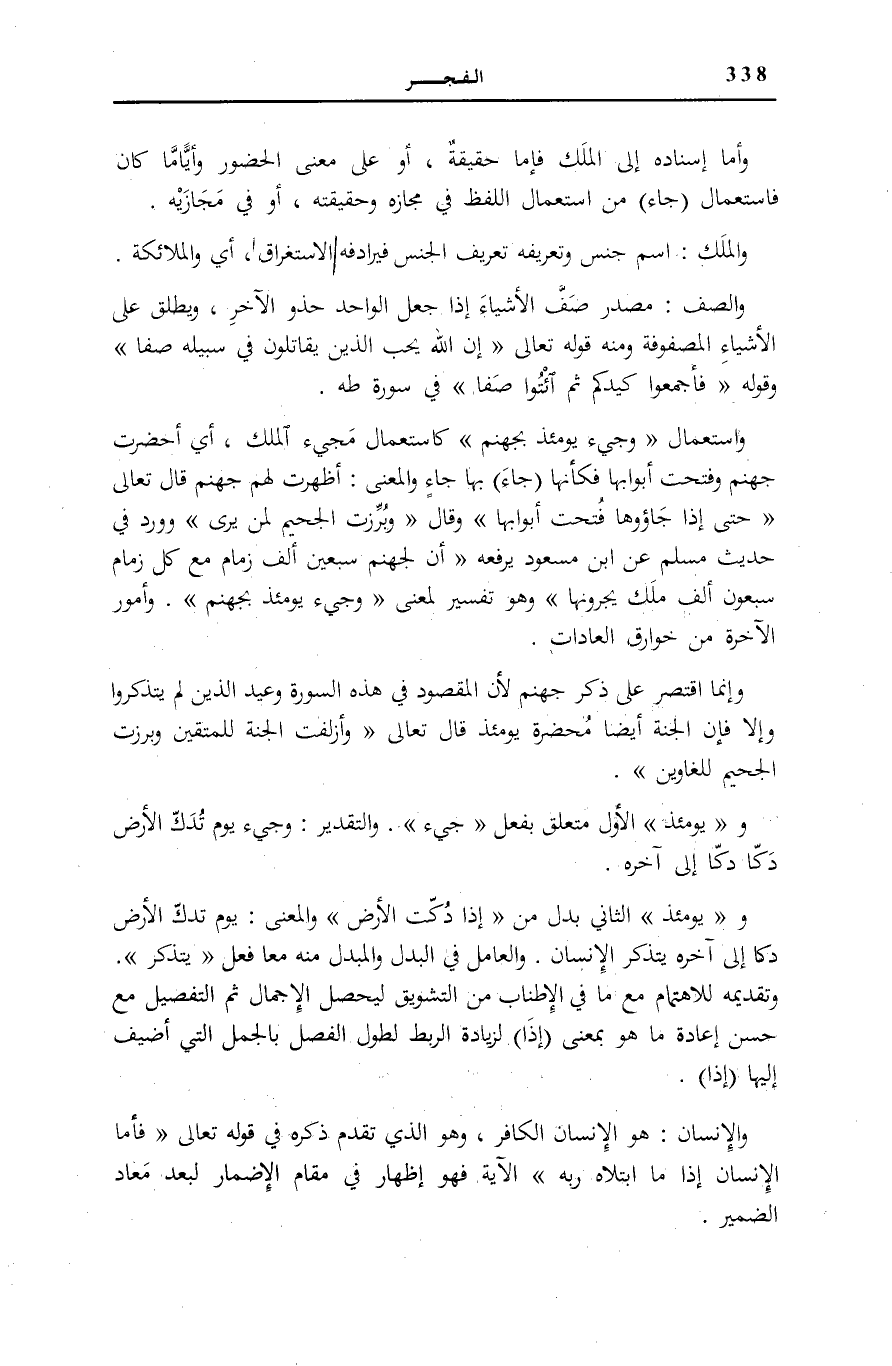 338
الفجر
وأما إسناده إلى الملَك فإما حقيقةٌ ، أو على معنى الحضور وأيًّامَّا كان
فاستعمال (جاء) من استعمال اللفظ في مجازه وحقيقته ، أو في مَجَازَيْه .
والملَك : اسم جنس وتعريفه تعريف الجنس فيرادفه الاستغراق ، أي والملائكة .
والصف : مصدر صَفَّ الأشياءَ إذا جعل الواحد حذو الآخرِ ، ويطلق على
الأشياء المصفوفة ومنه قوله تعالى « إن الله يحب الذين يقاتلون في سبيله صفا »
وقوله « فأجمعوا كيدكم ثم ٱئْتُوا صَفا » في سورة طه .
واستعمال « وجيء يومئذ بجهنم » كاستعمال مَجيء ٱلملك ، أي أحضرت
جهنم وفتحت أبوابها فكأنها (جاءَ) بها جاءٍ والمعنى : أظهرت لهم جهنم قال تعالى
« حتى إذا جَاؤوها فُتحت أبوابها » وقال « وبُرِّزت الجحيم لمن يرى » وورد في
حديث مسلم عن ابن مسعود يرفعه « أن لجهنم سبعين ألف زمام مع كل زمام
سبعون ألف ملَك يجرونها » وهو تفسير لمعنى « وجيء يومئذ بجهنم » . وأمور
الآخرة من خوارق العادات .
وإنما اقتصر على ذكر جهنم لأن المقصود في هذه السورة وعيد الذين لم يتذكروا
وإلا فإن الجنة أيضا مُحضرة يومئذ قال تعالى « وأزلفت الجنة للمتقين وبرزت
الجحيم للغاوين » .
و « يومئذ » الأول متعلق بفعل « جيء » . والتقدير : وجيء يوم تُدَكّ الأرض
دَكّا دكّا إلى آخره .
و « يومئذ » الثاني بدل من « إذا دُكّت الأرض » والمعنى : يوم تدكّ الأرض
دكا إلى آخره يتذكر الإنسان . والعامل في البدل والمبدل منه معا فعل « يتذكر ».
وتقديمه للاهتمام مع ما في الإطناب من التشويق ليحصل الإجمال ثم التفصيل مع
حسن إعادة ما هو بمعنى (إذَا) لزيادة الربط لطول الفصل بالجمل التي أضيف
إليها (إذا) .
والإنسان : هو الإنسان الكافر ، وهو الذي تقدم ذكره في قوله تعالى « فأما
الإنسان إذا ما ابتلاه ربه » الآية فهو إظهار في مقام الإضمار لبعد مَعاد
الضمير .